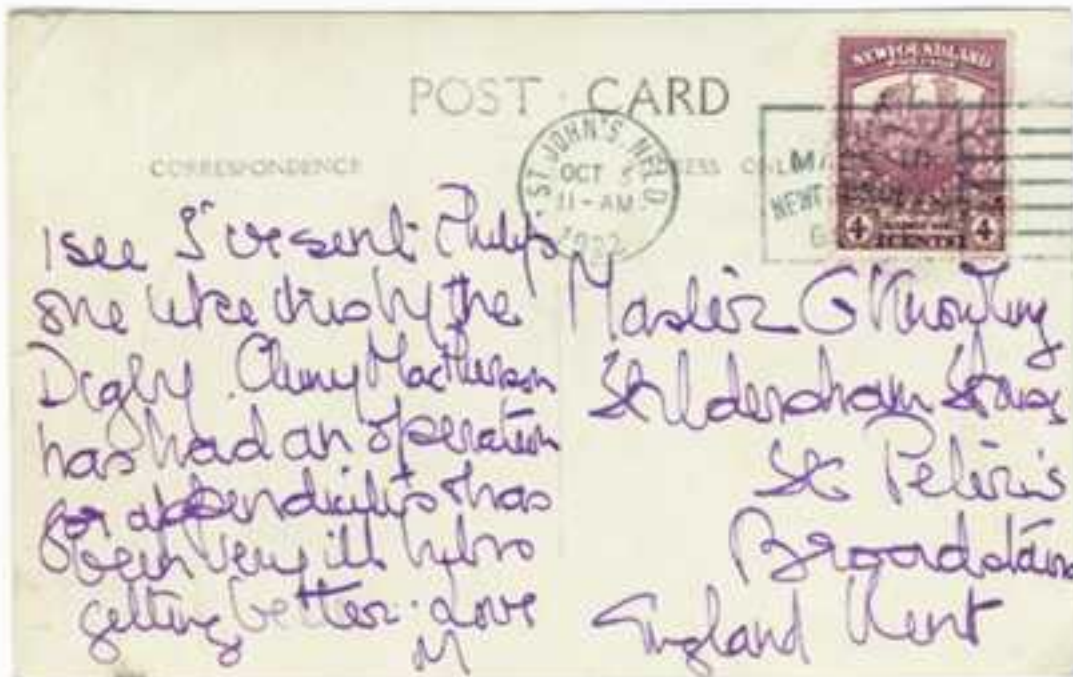 POST CARD
CORRESPONDENCE
NEWFOUNDLAND
ST. JOHN'S NFLD
OCT
11-AM
4 CENTS 4
I see I've sent Philip
one like this by the
Digby. Cluny MacPherson
has had an operation
for appendicitis & has
been very ill but is
getting better. Love
M
Master G Knowling
House
St Peter's
Broadstairs
England Kent